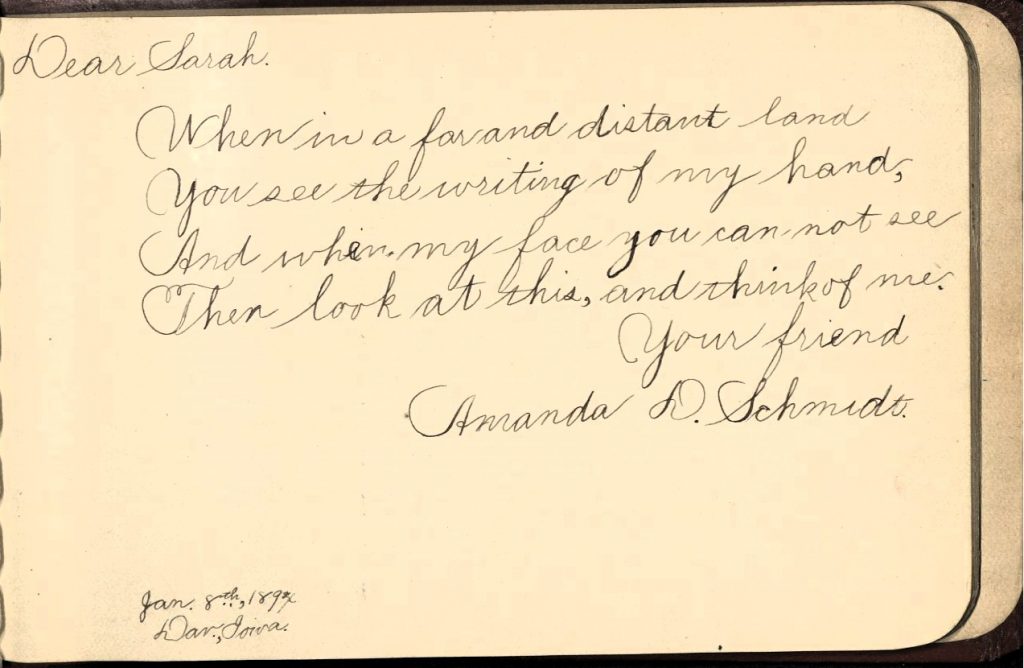 Dear Sarah.
When in a far and distant land
You see the writing of my hand,
And when my face you can not see
Then look at this, and think of me.
Your friend
Amanda D. Schmidt.
Jan. 8th, 
Dav., Iowa.